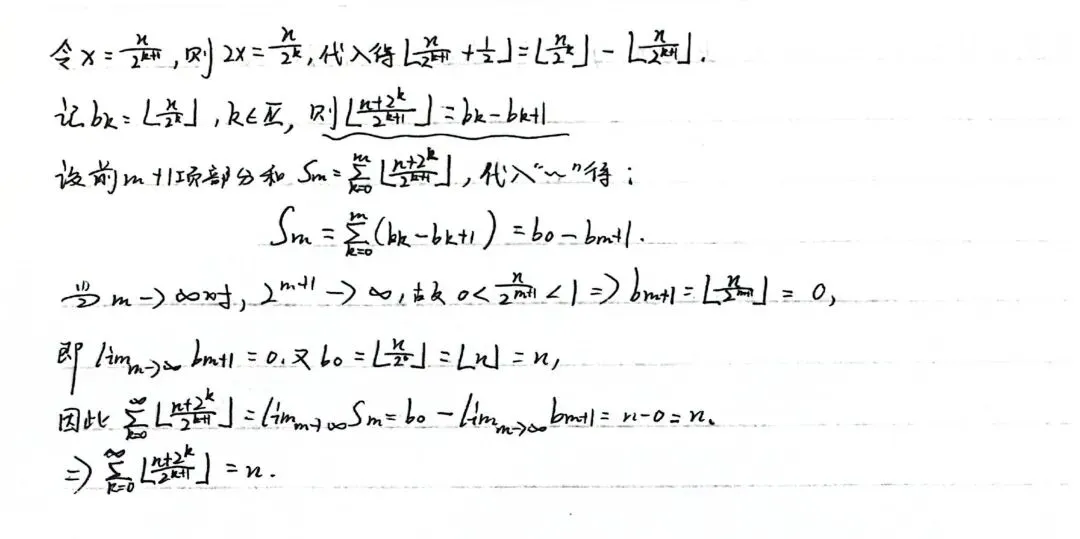 令 x = n/2^{k+1}, 则 2x = n/2^k, 代入得 ⌊n/2^{k+1} + 1/2⌋ = ⌊n/2^k⌋ - ⌊n/2^{k+1}⌋.
记 b_k = ⌊n/2^k⌋, k∈Z, 则 ⌊(n+2^k)/2^{k+1}⌋ = b_k - b_{k+1}
设前m+1项部分和 S_m = ∑_{k=0}^{m} ⌊(n+2^k)/2^{k+1}⌋, 代入"~"得:
S_m = ∑_{k=0}^{m} (b_k - b_{k+1}) = b_0 - b_{m+1}.
当 m→∞时, 2^{m+1}→∞, 故 0 < n/2^{m+1} < 1 => b_{m+1} = ⌊n/2^{m+1}⌋ = 0,
即 lim_{m→∞} b_{m+1} = 0. 又 b_0 = ⌊n/2^0⌋ = ⌊n⌋ = n,
因此 ∑_{k=0}^{∞} ⌊(n+2^k)/2^{k+1}⌋ = lim_{m→∞} S_m = b_0 - lim_{m→∞} b_{m+1} = n-0 = n.
=> ∑_{k=0}^{∞} ⌊(n+2^k)/2^{k+1}⌋ = n.